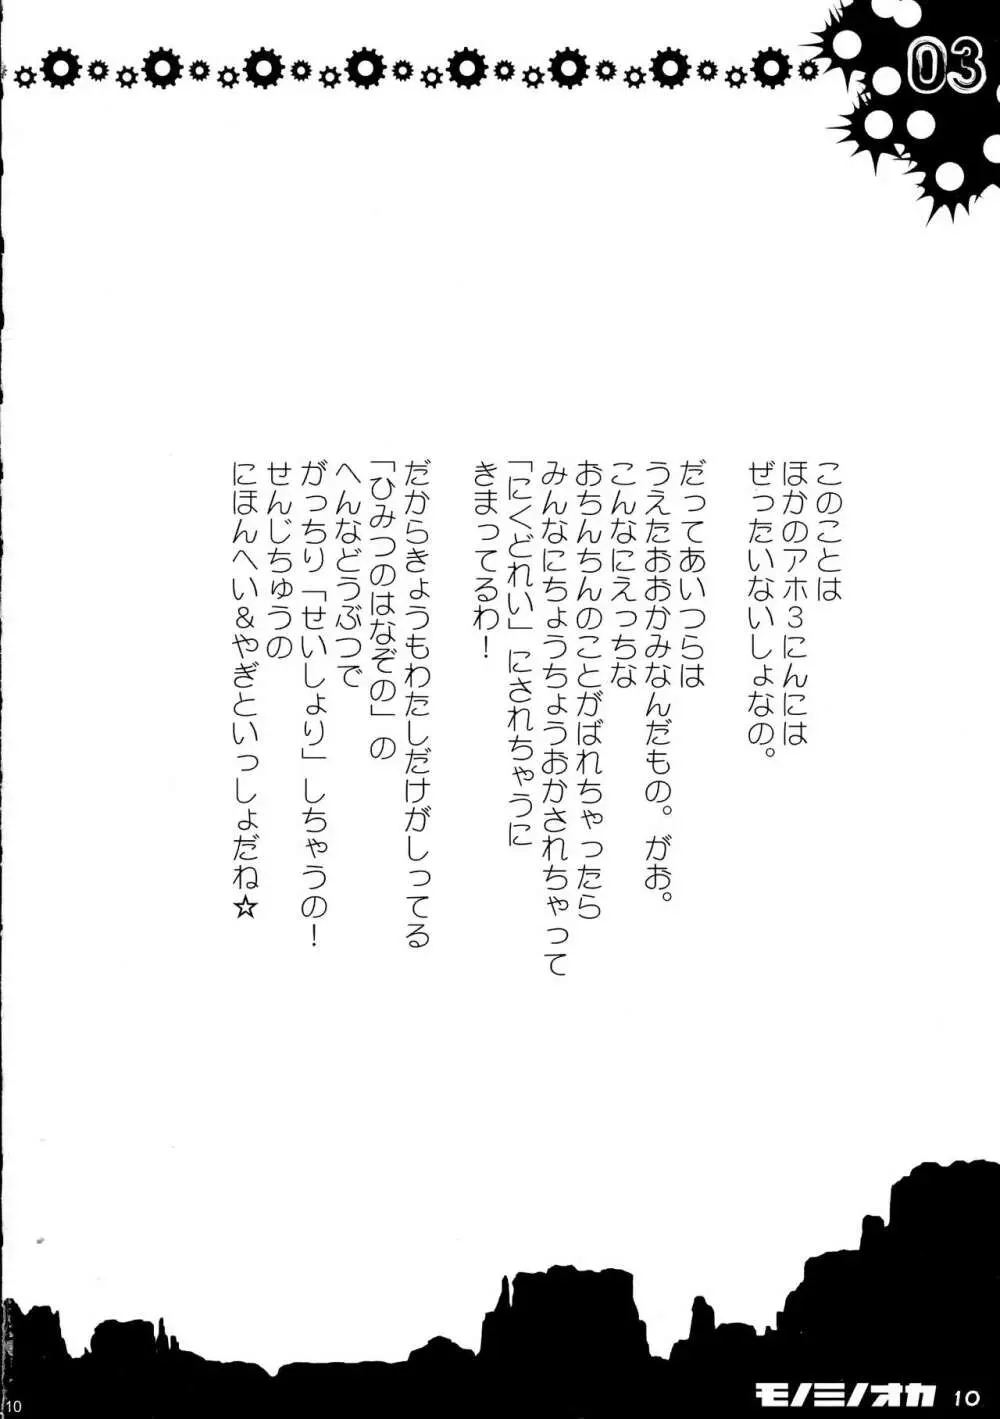 03
このことは
ほかのアホ3にんには
ぜったいないしょなの。
だってあいつらは
うえたおおかみなんだもの。がお。
こんなにえっちな
おちんちんのことがばれちゃったら
みんなにちょうちょうおかされちゃって
「にくどれい」にされちゃうに
きまってるわ！
だからきょうもわたしだけがしってる
「ひみつのはなぞの」の
へんなどうぶつで
がっちり「せいしょり」しちゃうの！
せんじちゅうの
にほんへい＆やぎといっしょだね☆
モノミノオカ 10
10